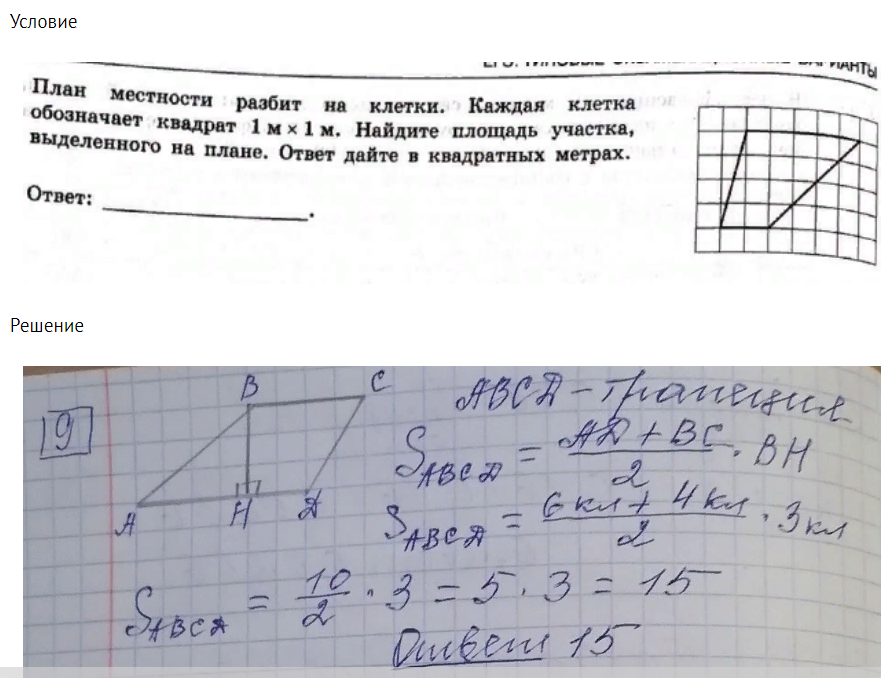 Условие
ЕГЭ. ТИПОВЫЕ ЭКЗАМЕНАЦИОННЫЕ ВАРИАНТЫ
План местности разбит на клетки. Каждая клетка
обозначает квадрат 1 м × 1 м. Найдите площадь участка,
выделенного на плане. Ответ дайте в квадратных метрах.
Ответ: ____________________.
Решение
9
B C
A H D
ABCD – трапеция
S ABCD = (AD + BC)/2 · BH
S ABCD = (6 кл + 4 кл)/2 · 3 кл
S ABCD = 10/2 · 3 = 5 · 3 = 15
Ответ 15